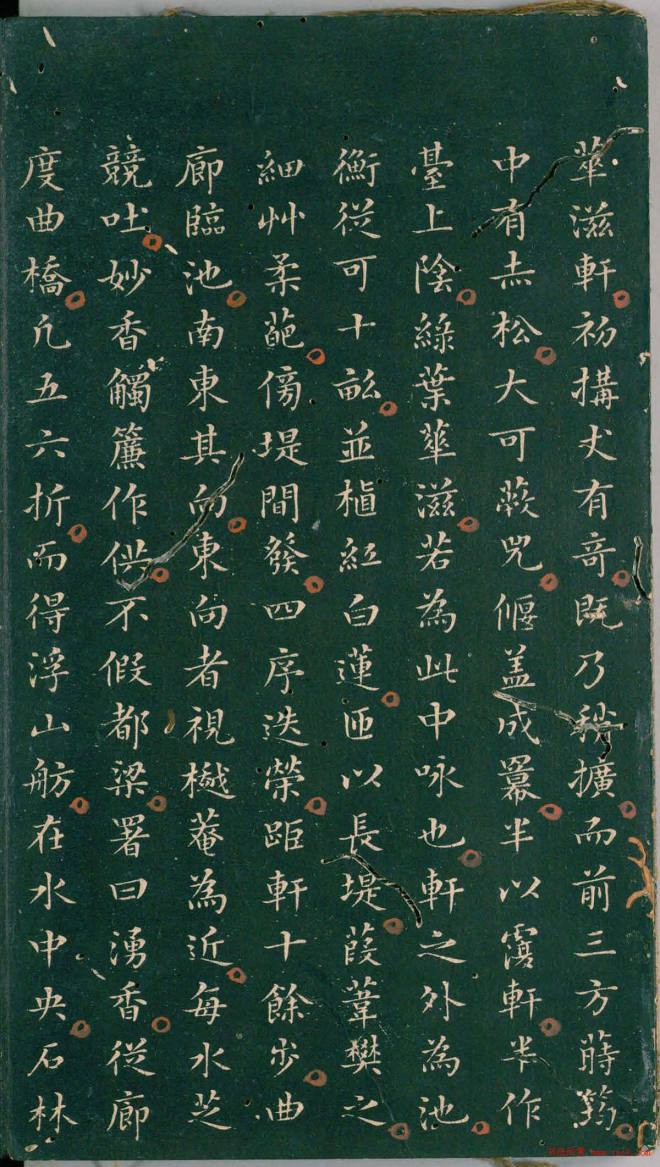 華滋軒初搆犬有竒既乃稍擴而前三方蒔
中有赤松大可蔽兕偃盖成羃半以覆軒半作
臺上陰綠葉華滋若為此中咏也軒之外為池
衡從可十畝並植紅白蓮匝以長堤葭葦樊之
細艸柔葩傍堤間發四序迭榮距軒十餘步曲
廊臨池南東其向東向者視樾菴為近每水芝
競吐妙香觸簾作供不假都梁署曰湧香從廊
度曲橋凡五六折而得浮山舫在水中央石林